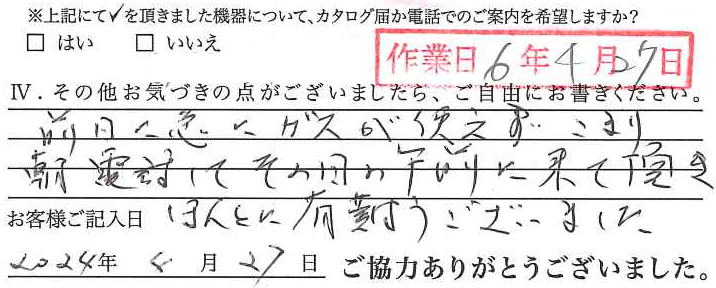 ※上記にて✓を頂きました機器について、カタログ届か電話でのご案内を希望しますか?
□ はい □ いいえ
作業日 6年4月27日
Ⅳ．その他お気づきの点がございましたら、ご自由にお書きください。
前日に急にガスが使えず こまり
朝 電話してその日の午前に来て頂き
お客様ご記入日 ほんとに有難うございました
2024年 4月27日 ご協力ありがとうございました。